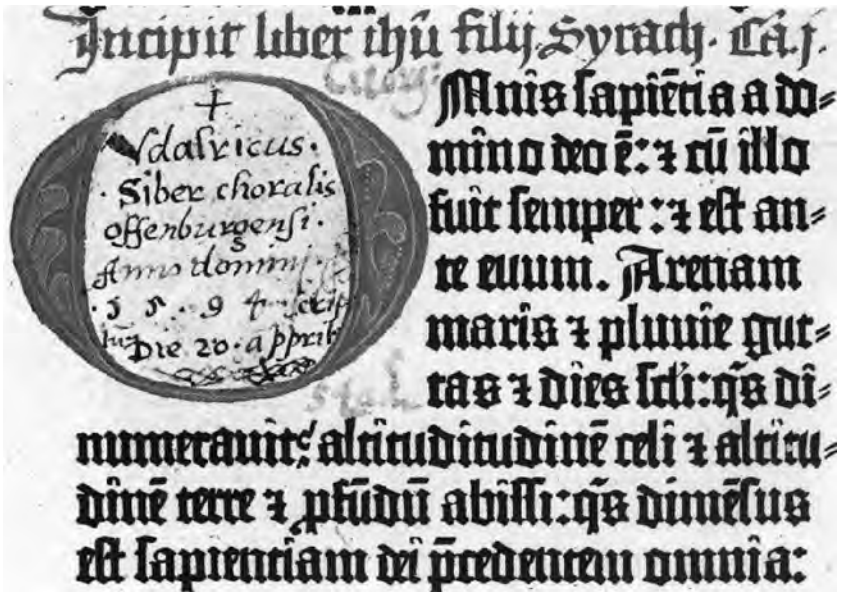 Incipit liber ihū filij Syrach. Ca. j.
+
Vdalricus.
. Siber choralis
offenburgensi.
Anno domini.
. 1 5 . 9 4 scrip
tum Die 20 . a pprilis
OMnis sapiētia a do⸗
mino deo ē: ⁊ cū illo
fuit semper: ⁊ est an⸗
te euum. Arenam
maris ⁊ pluuie gut⸗
tas ⁊ dies scli: q̄s di⸗
numerauit? altituditudinē celi ⁊ altitu⸗
dinē terre ⁊ ꝓfūdū abissi: q̄s dimēsus
est sapientiam dei p̄cedentem omnia: